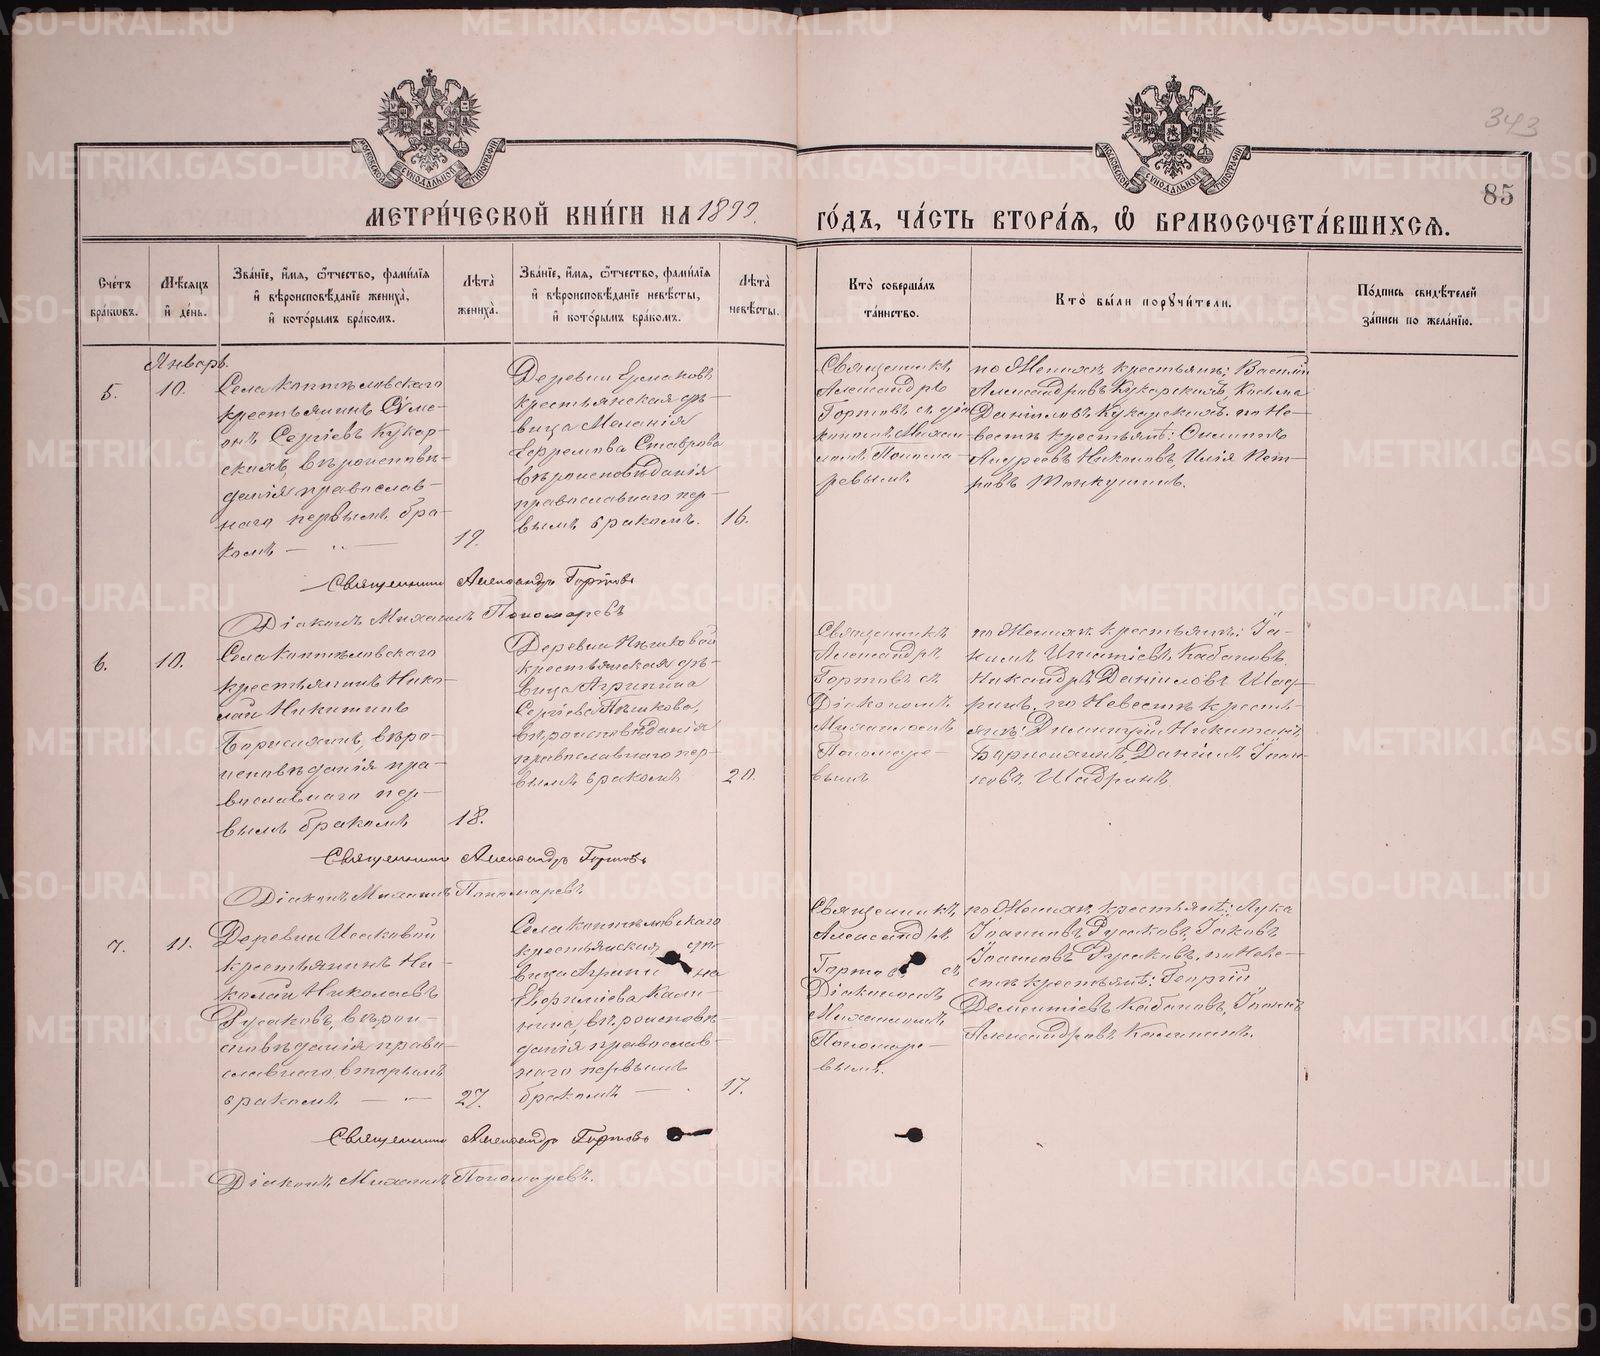 343
85
МЕТРИ́ЧЕСКОЙ КНИ́ГИ НА 1899 ГО́ДЪ, ЧА́СТЬ ВТОРА́Я, Ѽ БРАКОСОЧЕТА́ВШИХСѦ.
Сче́тъ бра́кѡвъ.
Мѣ́сяцъ и҆ де́нь.
Зва́нїе, и҆́мя, ѻ҆́тчество, фами́лїя и҆ вѣроисповѣ́данїе жениха̀, и҆ кото́рымъ бра́комъ.
Лѣта̀ жениха̀.
Зва́нїе, и҆́мя, ѻ҆́тчество, фами́лїя и҆ вѣроисповѣ́данїе невѣ́сты, и҆ кото́рымъ бра́комъ.
Лѣта̀ невѣ́сты.
Кто̀ соверша́лъ та́инство.
Кто̀ бы́ли порꙋчи́тели.
По́дпись свидѣ́телей за́писи по жела́нїю.
Январь.
5.
10.
Села Коптѣловскаго
крестьянинъ Симе-
онъ Сергіевъ Кукар-
скихъ, вѣроисповѣ-
данія православ-
наго первымъ бра-
комъ
19.
Деревни Ермаковъ
крестьянская дѣ-
вица Меланія
Ефремова Ставрова
вѣроисповѣданія
православнаго пер-
вымъ бракомъ.
16.
Священникъ
Александръ
Гортовъ съ діа
кономъ Михаи
ломъ Понома
ревымъ
по Женихѣ крестьяне: Василій
Александровъ Кукарскихъ, Косьма
Даніиловъ Кукарскихъ. по Не-
вестѣ крестьяне:
Андреевъ Никоновъ, Илія Пет-
ровъ
Священникъ Александръ Гортовъ
Діаконъ Михаилъ Пономаревъ
6.
10.
Села Коптѣловскаго
крестьянинъ Нико-
лай Никитинъ
Борисихинъ, вѣро-
исповѣданія пра-
вославнаго пер-
вымъ бракомъ
18.
Деревни Пѣшковой
крестьянская дѣ-
вица Агрипина
Сергіева Пѣшкова,
вѣроисповѣданія
православнаго пер-
вымъ бракомъ
20.
Священникъ
Александръ
Гортовъ съ
Діакономъ
Михаиломъ
Пономаре-
вымъ
по Женихѣ крестьяне: Іа-
кимъ Игнатіевъ Кабановъ,
Никандръ Даніиловъ Шад-
ринъ. по Невестѣ кресть-
яне: Димитрій Никитинъ
Борисихинъ, Даніилъ Іоан-
новъ Шадринъ
Священникъ Александръ Гортовъ
Діаконъ Михаилъ Пономаревъ
7.
11.
Деревни Исаковой
крестьянинъ Ни-
колай Николаевъ
Русаковъ, вѣрои-
сповѣданія право-
славнаго, вторымъ
бракомъ
27.
Села Коптѣловскаго
крестьянская дѣ-
вица Агрипи на
Евфиміева Кали-
нина, вѣроисповѣ-
данія православ-
наго первымъ
бракомъ
17.
Священникъ
Александръ
Гортовъ съ
Діакономъ
Михаиломъ
Пономаре-
вымъ.
по Женихѣ крестьяне: Лука
Іоанновъ Русаковъ, Іаковъ
Іоанновъ Русаковъ. по Неве-
стѣ крестьяне: Георгій
Дементіевъ Кабановъ, Іоаннъ
Александровъ Калининъ.
Священникъ Александръ Гортовъ
Діаконъ Михаилъ Пономаревъ.
METRIKI.GASO-URAL.RU